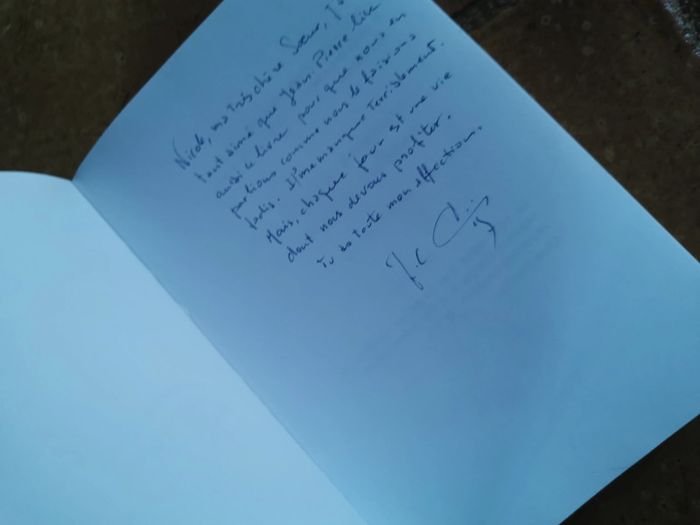 Nicole, ma très chère Sœur, J'ai
tant aimé que Jean-Pierre lise
aussi ce livre pour que nous en
parlions comme nous le faisions
jadis. Il me manque terriblement.
Mais, chaque jour est une vie
dont nous devons profiter.
Tu as toute mon affection.
J.C